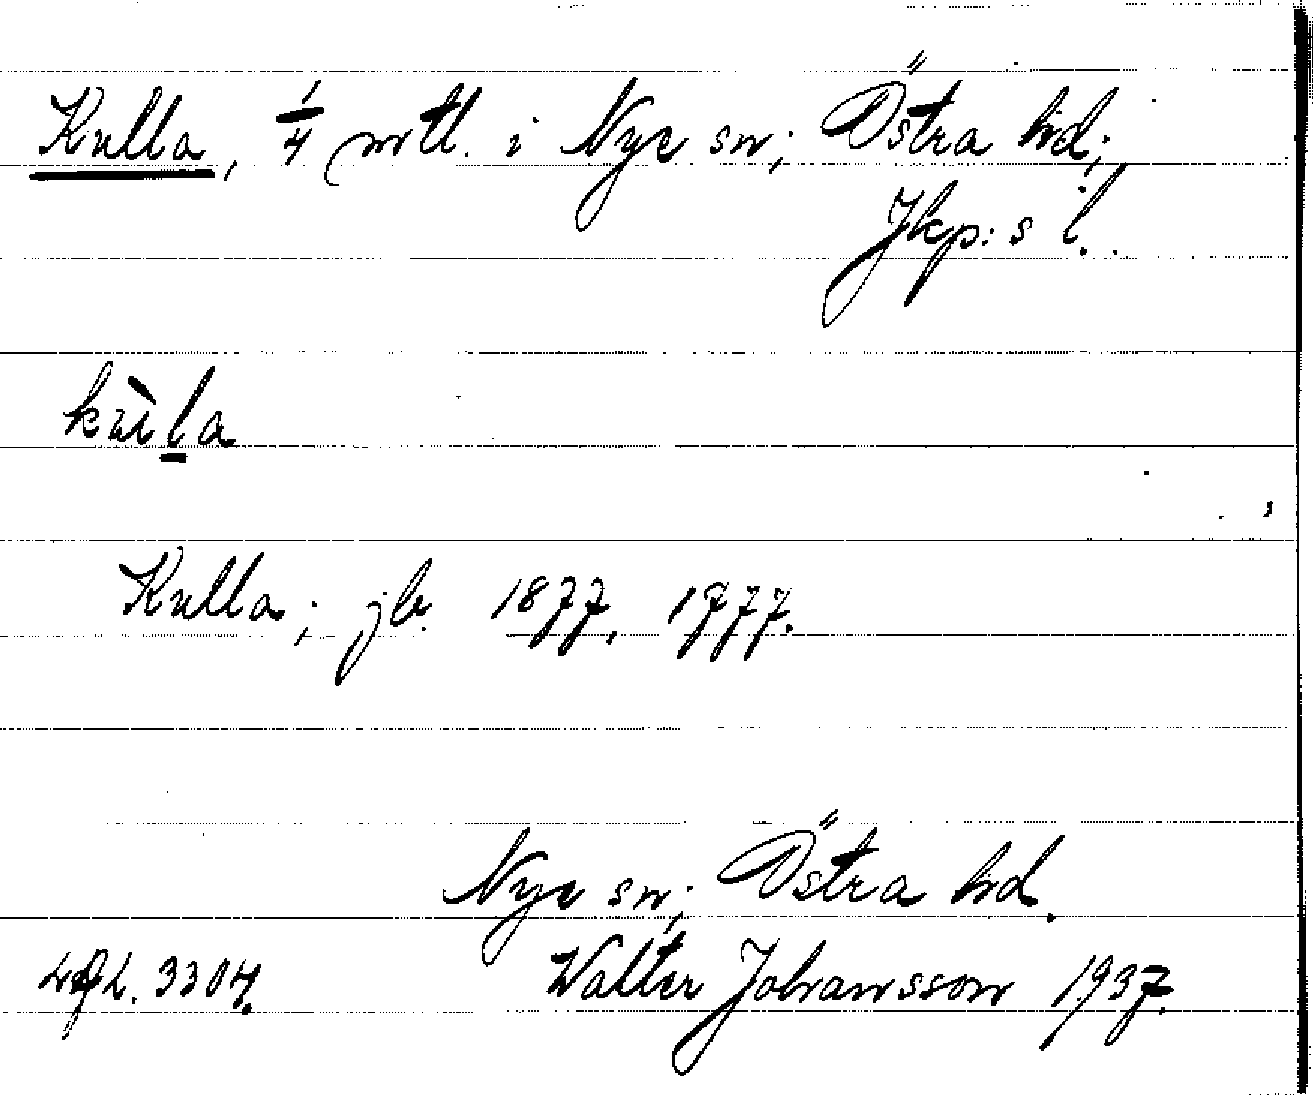 Kulla, 1/4 mtl. i Nye sn; Östra hd;
Jkp:s l.
kùl̲a
Kulla; jb. 1877, 1777.
Nye sn; Östra hd.
3304.
Walter Johansson 1937.